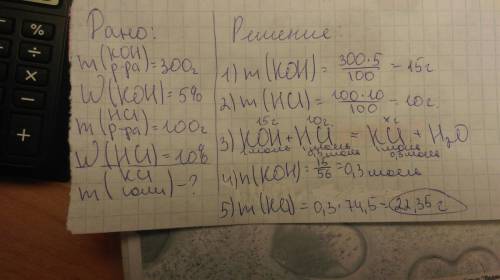 Дано:
m(KOH р-ра)=300г
W(KOH)=5%
m(HCl р-ра)=100г
W(HCl)=10%
m(KCl соли)-?
Решение:
1) m(KOH) = 300·5/100 = 15г
2) m(HCl) = 100·10/100 = 10г.
15г 10г xг
3) KOH + HCl = KCl + H₂O
1моль 1моль 1моль
0,3моль 0,3моль
4) n(KOH) = 15/56 = 0,3 моль
5) m(KCl) = 0,3·74,5 = 22,35 г